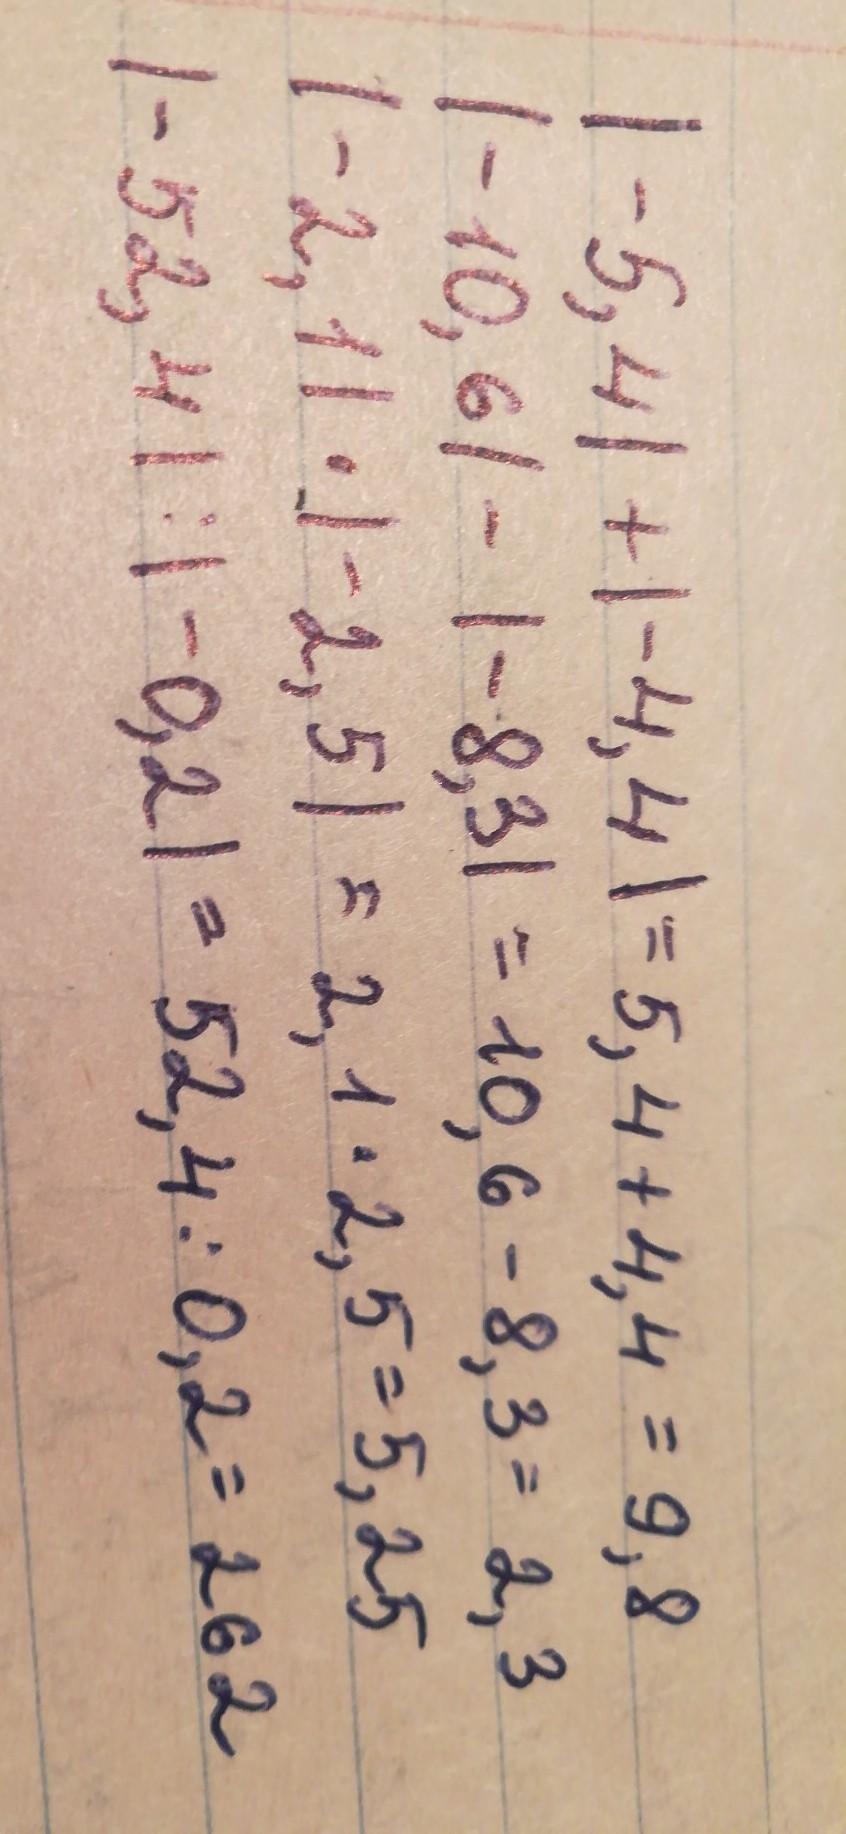 |-5,4|+|-4,4|=5,4+4,4=9,8
|-10,6|-|-8,3|=10,6-8,3=2,3
|-2,1|·|-2,5|=2,1·2,5=5,25
|-52,4|:|-0,2|=52,4:0,2=262